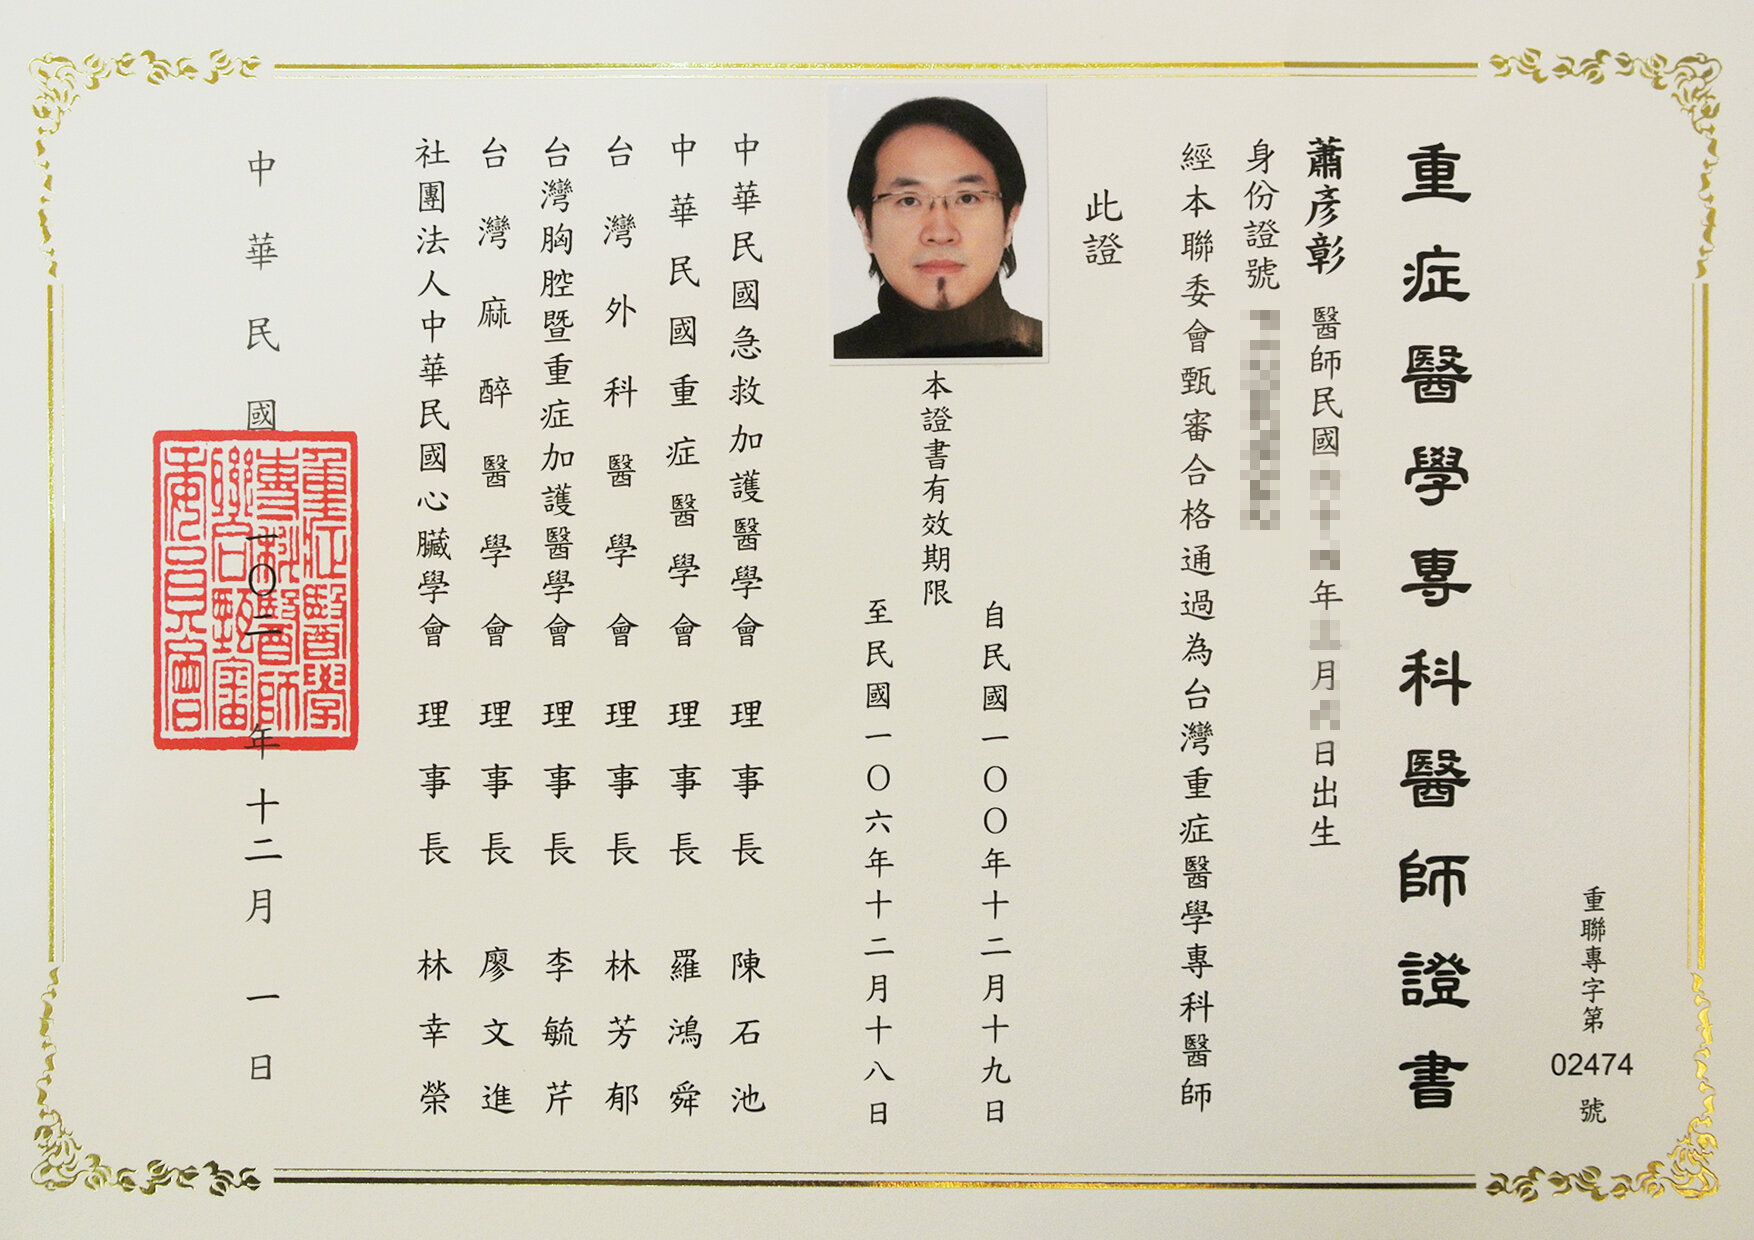 重聯專字第02474號
重症醫學專科醫師證書
蕭彥彰 醫師民國年月日出生
身份證號
經本聯委會甄審合格通過為台灣重症醫學專科醫師
此證
本證書有效期限
自民國一〇〇年十二月十九日
至民國一〇六年十二月十八日
中華民國急救加護醫學會 理事長 陳石池
中華民國重症醫學會 理事長 羅鴻舜
台灣外科醫學會 理事長 林芳郁
台灣胸腔暨重症加護醫學會 理事長 李毓芹
台灣麻醉醫學會 理事長 廖文進
社團法人中華民國心臟學會 理事長 林幸榮
中華民國一〇二年十二月一日
重症醫學
專科醫師
聯合甄審
委員會